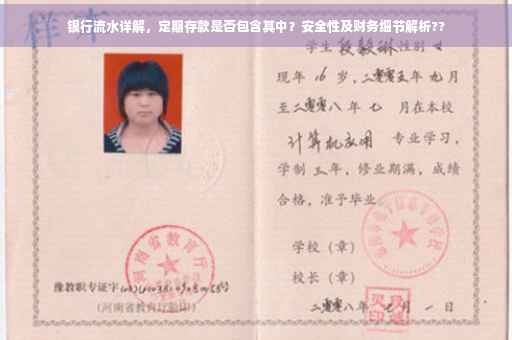 银行流水详解，定期存款是否包含其中？安全性及财务细节解析??
样本
学生 段毅琳 性别 女
现年 16 岁，二零零五年 九月
至二零零八年 七 月在本校
计算机应用 专业学习，
学制 三 年，修业期满，成绩
合格，准予毕业
学校（章）
校长（章）
二零零八年 七 月 一 日
河南省教育厅
豫教职专证字
（河南省教育厅验印）